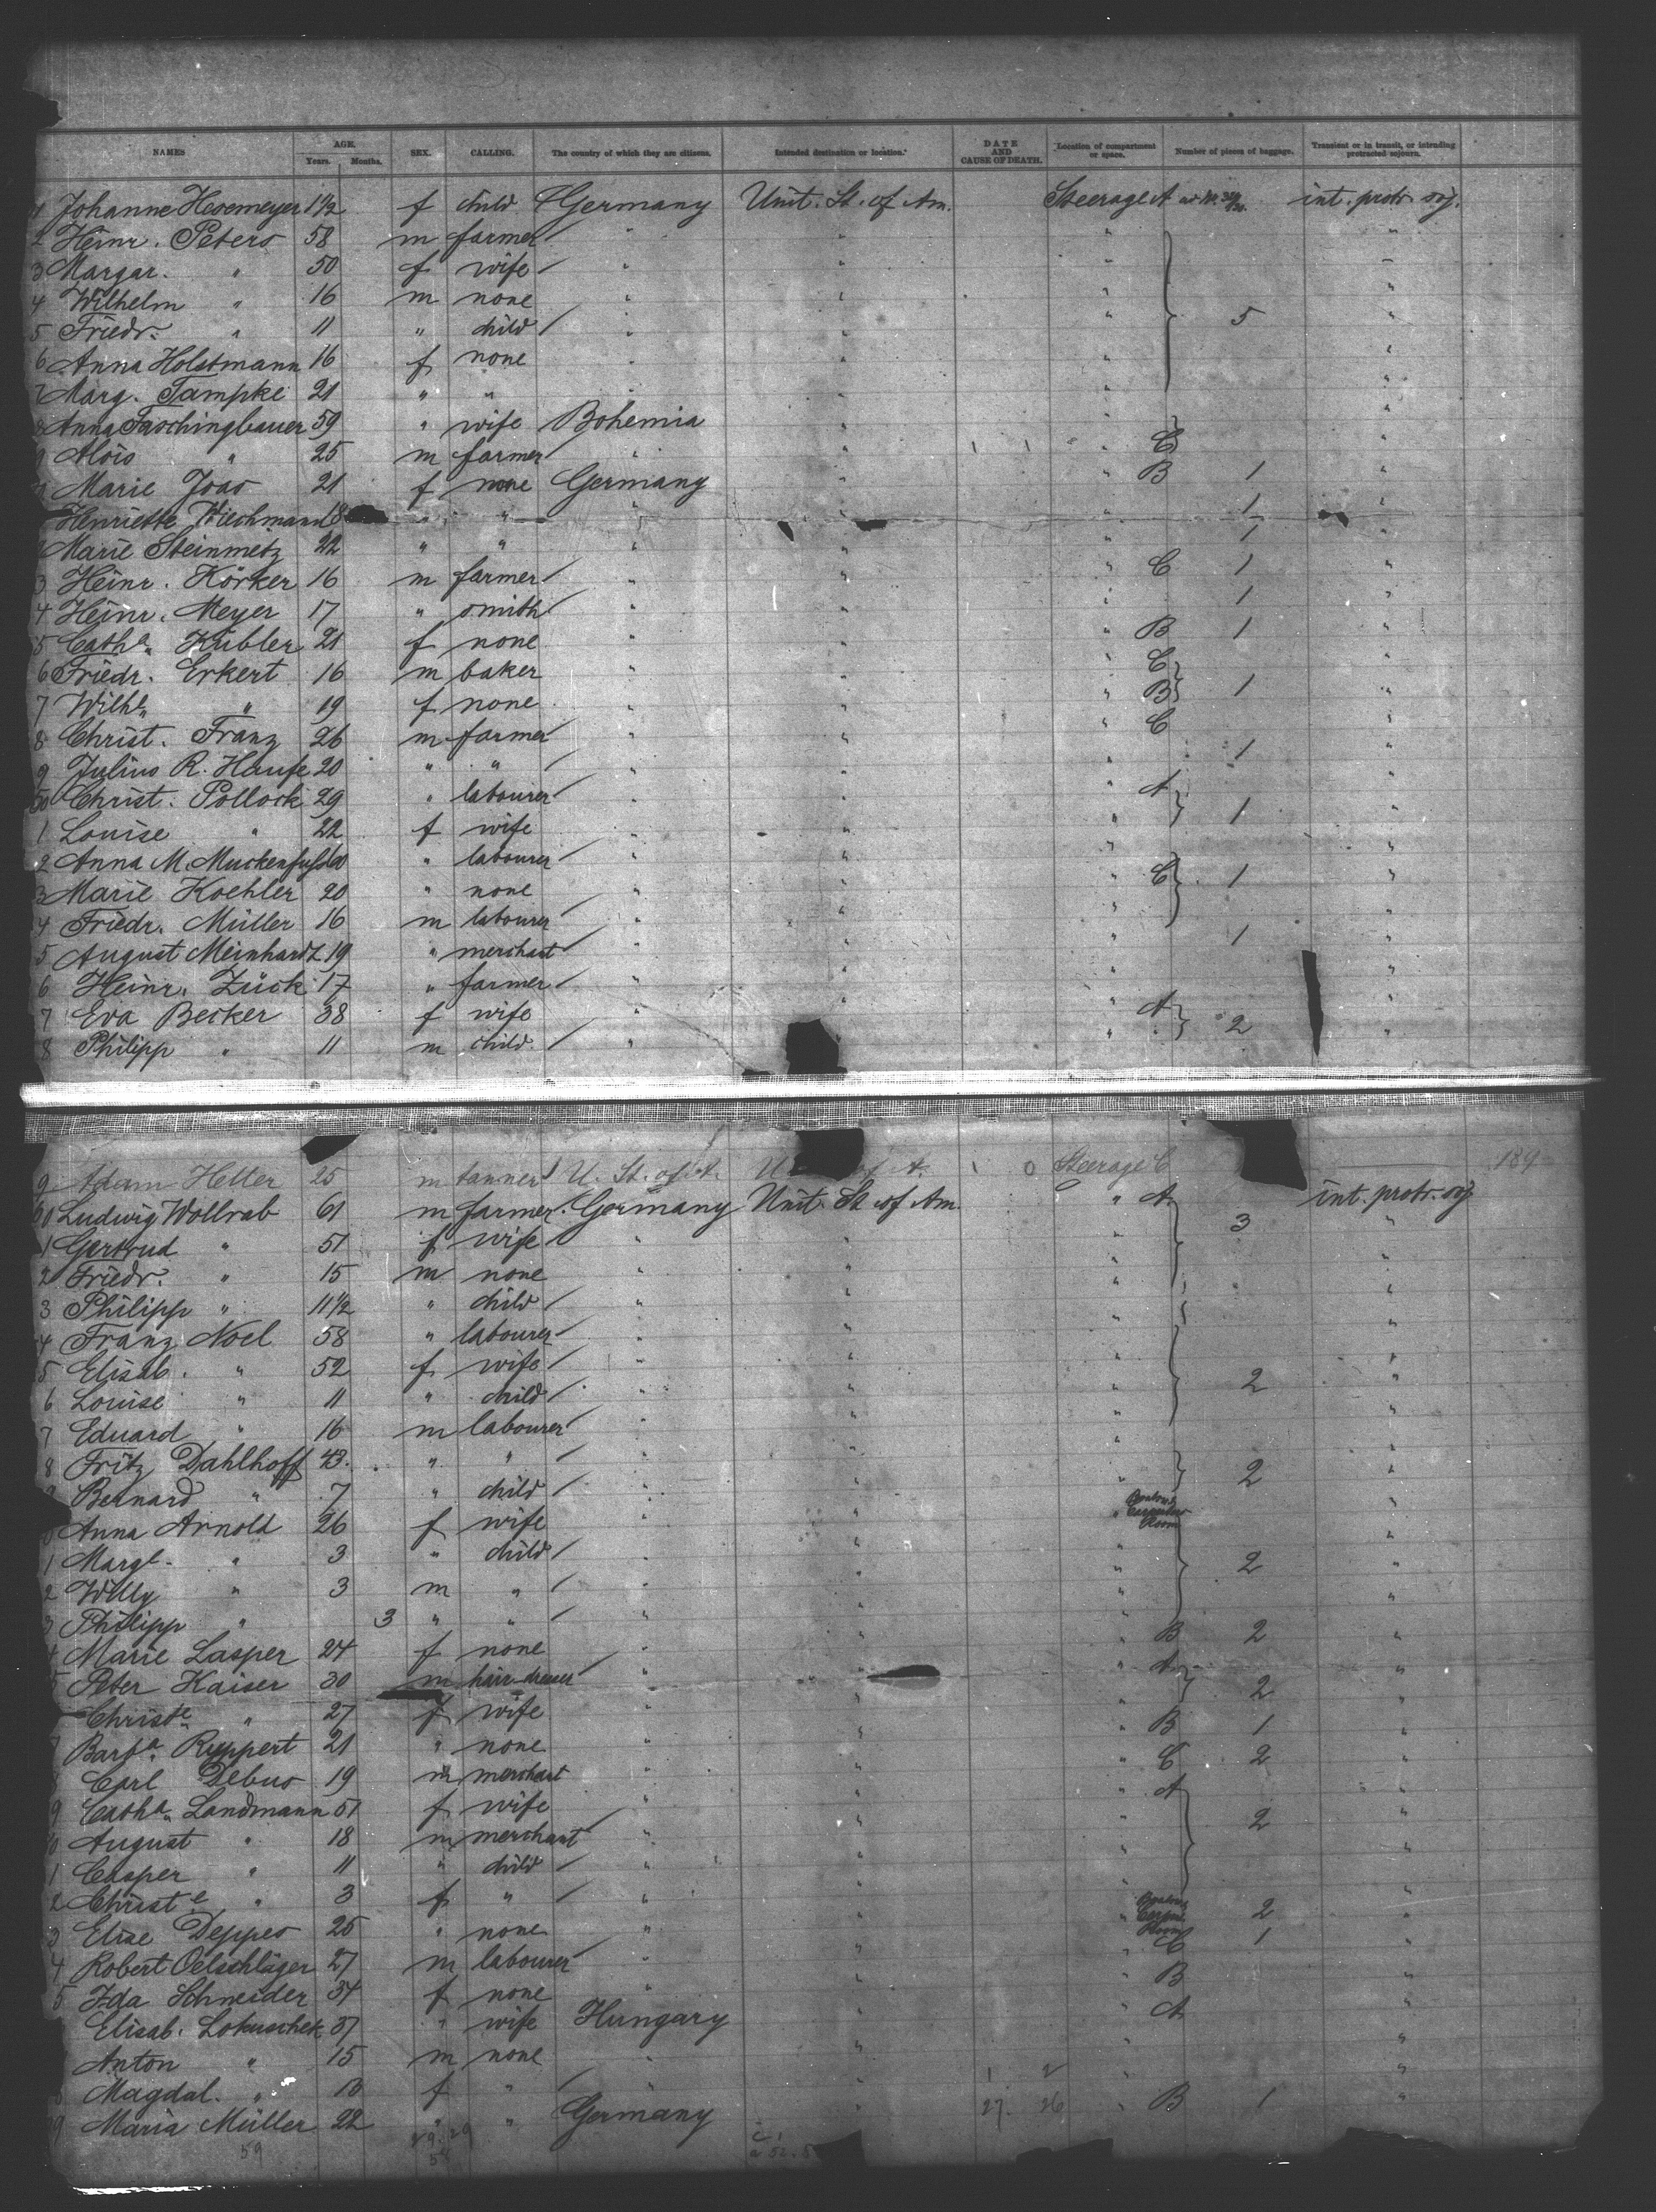 NAMES AGE. Years. Months. SEX. CALLING. The country of which they are citizens. Intended destination or location.* DATE AND CAUSE OF DEATH. Location of compartment or space. Number of pieces of baggage. Transient or in transit, or intending protracted sojourn.
1 Johanne Hesemeyer 1 1/2 f child Germany Unit. St. of Am. Steerage A int. protr. soj.
2 Heinr. Peters 58 m farmer " " " "
3 Margar. " 50 f wife " " " "
4 Wilhelm " 16 m none " " " "
5 Friedr. " 11 " child " " " 5 "
6 Anna Holstmann 16 f none " " " "
7 Marg. Tampke 21 " " " " " "
8 Anna Faschingbauer 59 " wife Bohemia " " "
9 Alois " 25 m farmer " " " C "
Marie Joas 21 f none Germany " " B 1 "
Henriette Wiechmann 18 " " " " " 1 "
Marie Steinmetz 22 " " " " " 1 "
3 Heinr. Körker 16 m farmer " " " C 1 "
4 Heinr. Meyer 17 " smith " " " 1 "
5 Cath.a Kübler 21 f none " " " B 1 "
6 Friedr. Erkert 16 m baker " " " C "
7 Wilh.e " 19 f none " " " B 1 "
8 Christ. Franz 26 m farmer " " " C "
9 Julius R. Haufe 20 " " " " " 1 "
50 Christ. Pollock 29 " labourer " " " A "
1 Louise " 22 f wife " " " 1 "
2 Anna M. Muckenfuss 60 " labourer " " " "
3 Marie Koehler 20 " none " " " C 1 "
4 Friedr. Müller 16 m labourer " " " "
5 August Meinhardt 19 " merchant " " " 1 "
6 Heinr. Zück 17 " farmer " " " "
7 Eva Becker 38 f wife " " " A "
8 Philipp " 11 m child " " " 2 "
9 Adam Heller 25 m tanner U. St. of A. of A. 0 Steerage C 189
60 Ludwig Wollrab 61 m farmer Germany Unit. St. of Am. " A int. protr. soj.
1 Gertrud " 51 f wife " " " 3 "
2 Friedr. " 15 m none " " " "
3 Philipp " 11 1/2 " child " " " "
4 Franz Noel 58 " labourer " " " "
5 Elisab. " 52 f wife " " " "
6 Louise " 11 " child " " " 2 "
7 Eduard " 16 m labourer " " " "
8 Fritz Dahlhoff 43. " " " " " "
9 Bernard " 7 " child " " " 2 "
Anna Arnold 26 f wife " " " Room "
1 Marg.e " 3 " child " " " "
2 Willy " 3 m " " " " 2 "
3 Philipp " 3 " " " " " "
4 Marie Lasper 24 f none " " " B 2 "
5 Peter Kaiser 30 m hair-dresser " " " A "
Christ.e " 27 f wife " " " 2 "
7 Barb.a Ruppert 21 " none " " " B 1 "
8 Carl Debus 19 m merchant " " " C 2 "
9 Cath.a Landmann 51 f wife " " " A "
August " 18 m merchant " " " 2 "
1 Casper " 11 " child " " " "
2 Christ.e " 3 f " " " " "
3 Elise Deppes 25 " none " " " Room 2 "
4 Robert Oelschläger 27 m labourer " " " C 1 "
5 Ida Schneider 34 f none " " " B "
Elisab. Lokuschek 37 " wife Hungary " " A "
Anton " 15 m none " " " "
8 Magdal. " 13 f " " " " "
9 Maria Müller 22 " " Germany " 27. 26 " B 1 "
59